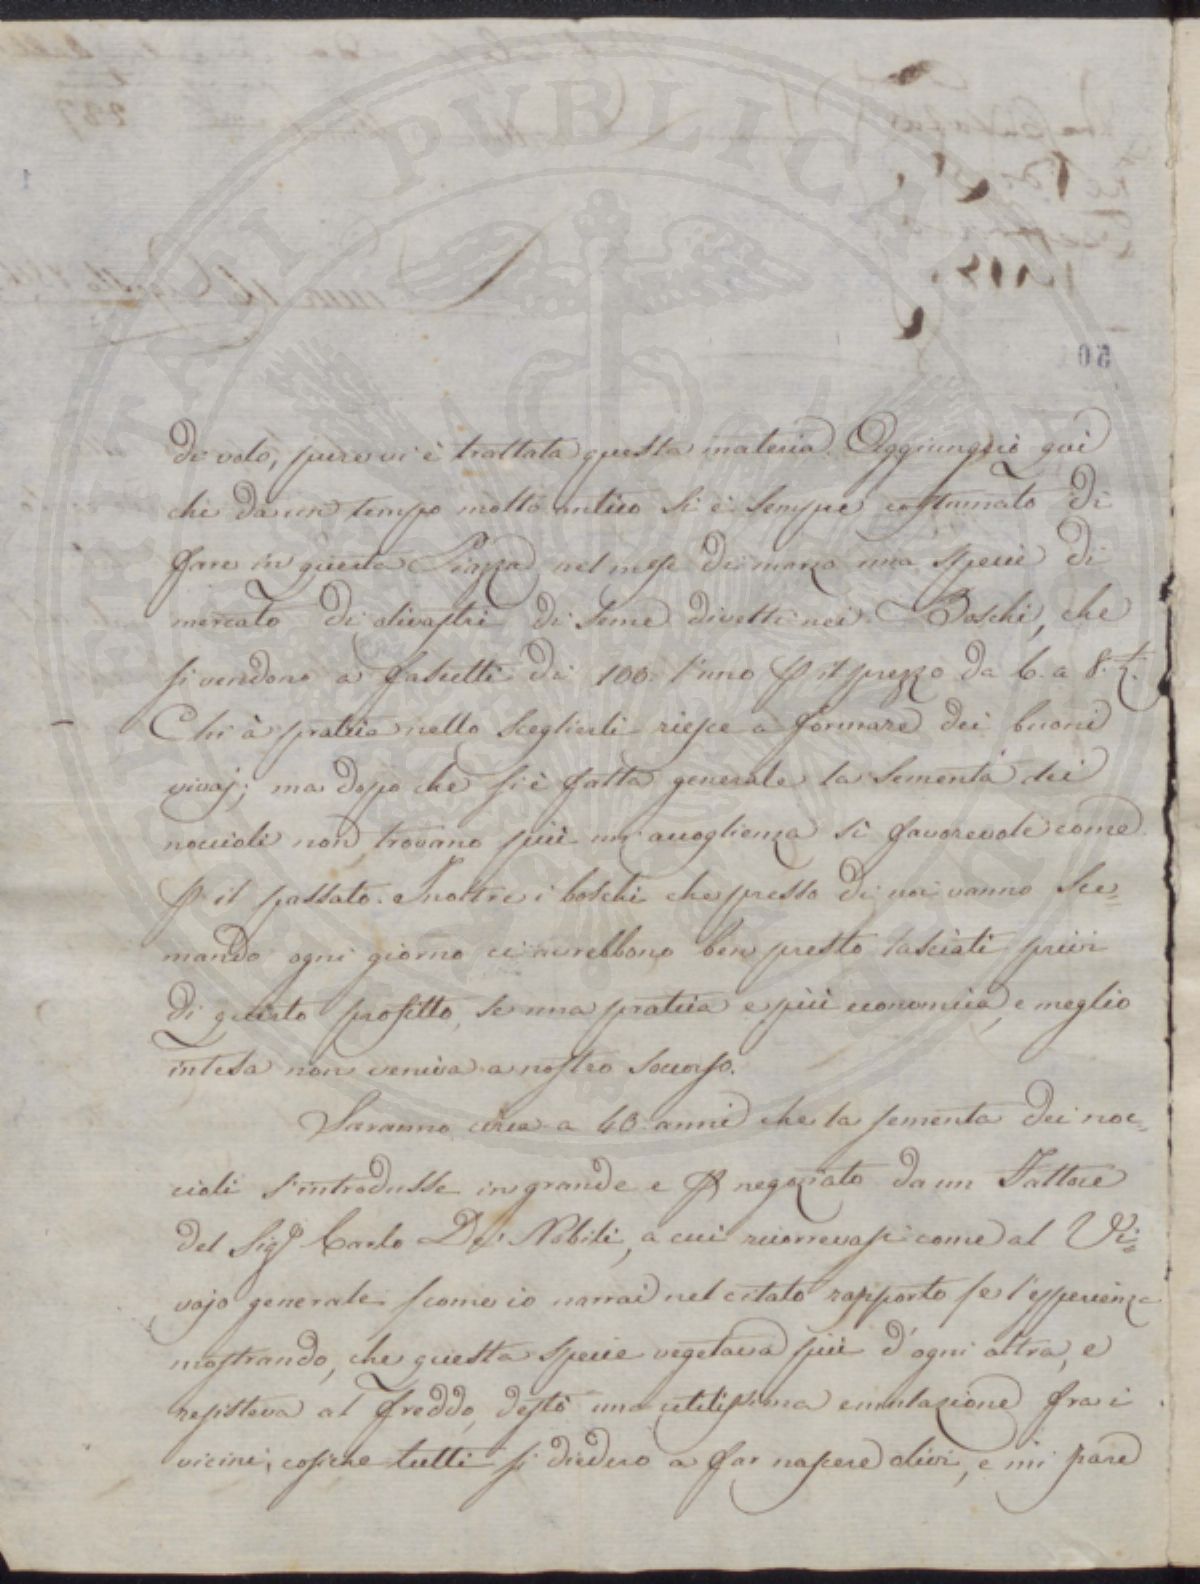 di volo, pure vi è trattata questa materia. Aggiungerò quì
che da un tempo molto antico si è sempre costumato di
fare in questa Piazza nel mese di marzo una specie di
mercato di olivastri di seme divelti nei Boschi, che
si vendono a fascetti di 100. l'uno p il prezzo da 6. a 8.
Chi à pratica nello sceglierli riesce a formare dei buoni
vivaj; ma dopo che si è fatta generale la sementa dei
noccioli non trovano più un'accoglienza sì favorevole come
p il passato. Inoltre i boschi che presso di noi vanno sce=
mando ogni giorno ci avrebbono ben presto lasciati privi
di questo profitto, se una pratica e più economica, e meglio
intesa non veniva a nostro soccorso.
Saranno circa a 40. anni che la sementa dei noc=
cioli s'introdusse in grande e p negoziato da un Fattore
del Sig.r Carlo De' Nobili, a cui ricorrevasi come al Vi=
vajo generale, come io narrai nel citato rapporto se l'esperienza
mostrando, che questa specie vegetava più d'ogni altra, e
resisteva al freddo, destò una utilissima emulazione fra i
vicini, cosicche tutti si diedero a far nascere olivi, e mi pare